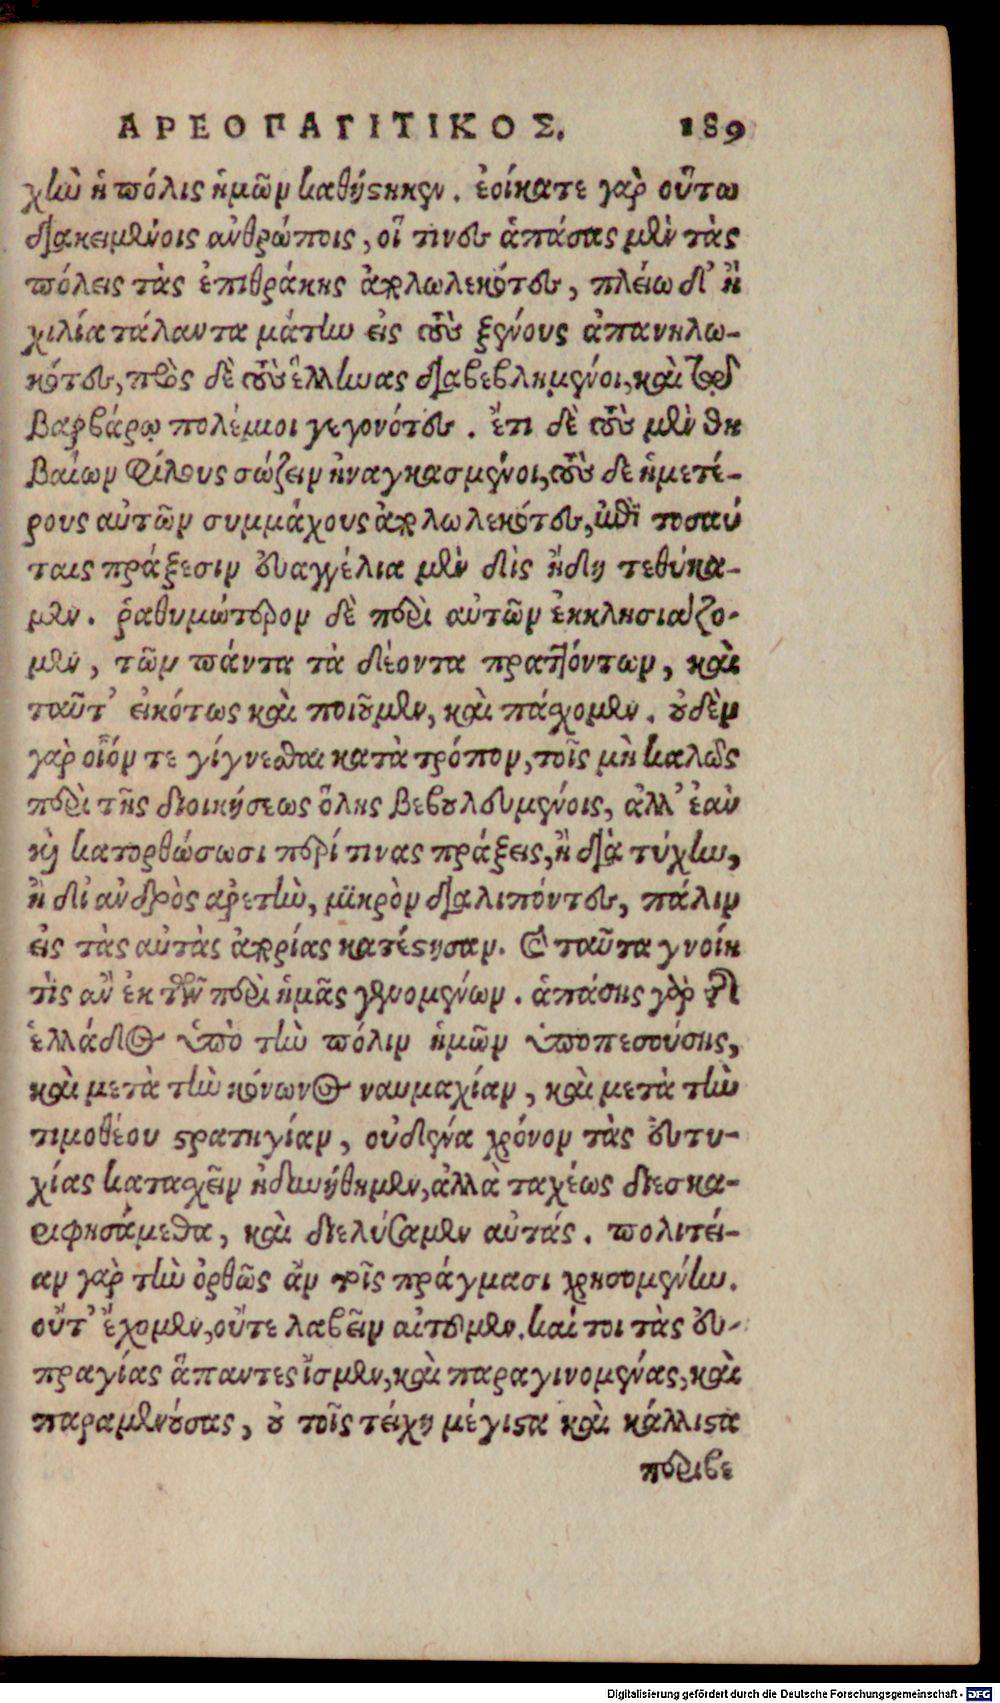 ΑΡΕΟΠΑΓΙΤΙΚΟΣ. 189
χὴν ἡ πόλις ἡμῶν καθέστηκεν. ἐοίκατε γὰρ οὕτω
διακειμένοις ἀνθρώποις, οἵ τινες ἁπάσας μὲν τὰς
πόλεις τὰς ἐπιθράκης ἀπολωλεκότες, πλείω δ' ἢ
χιλία τάλαντα μάτην εἰς τοὺς ξένους ἀπανηλω-
κότες, πρὸς δὲ τοὺς ἕλληνας διαβεβλημένοι, καὶ τοῦ
βαρβάρῳ πολέμιοι γεγονότες. ἔτι δὲ τοὺς μὲν θη
βαίων φίλους σώζειν ἠναγκασμένοι, τοὺς δὲ ἡμετέ-
ρους αὐτῶν συμμάχους ἀπολωλεκότες, ἐπὶ τοσαύ
ταις πράξεσιν εὐαγγέλια μὲν δὶς ἤδη τεθύκα-
μεν. ῥαθυμότερον δὲ περὶ αὐτῶν ἐκκλησιάζο-
μεν, τῶν πάντα τὰ δέοντα πραττόντων, καὶ
ταῦτ' εἰκότως καὶ ποιοῦμεν, καὶ πάσχομεν. οὐδὲν
γὰρ οἷόν τε γίγνεσθαι κατὰ τρόπον, τοῖς μὴ καλῶς
περὶ τῆς διοικήσεως ὅλης βεβουλευμένοις, ἀλλ' ἐὰν
καὶ κατορθώσωσι περί τινας πράξεις, ἢ διὰ τύχην,
ἢ δι' ἀνδρὸς ἀρετὴν, μικρὸν διαλιπόντες, πάλιν
εἰς τὰς αὐτὰς ἀπορίας κατέστησαν. καὶ ταῦτα γνοίη
τὶς ἂν ἐκ τῶν περὶ ἡμᾶς γενομένων. ἁπάσης γὰρ τῆς
ἑλλάδος ὑπὸ τὴν πόλιν ἡμῶν ὑποπεσούσης,
καὶ μετὰ τὴν κόνωνος ναυμαχίαν, καὶ μετὰ τὴν
τιμοθέου στρατηγίαν, οὐδένα χρόνον τὰς εὐτυ-
χίας κατασχεῖν ἠδυνήθημεν, ἀλλὰ ταχέως διεσκα-
ριφησάμεθα, καὶ διελύσαμεν αὐτάς. πολιτεί-
αν γὰρ τὴν ὀρθῶς ἂν τοῖς πράγμασι χρησομένην.
οὔτ' ἔχομεν, οὔτε λαβεῖν αἰτοῦμεν. καί τοι τὰς εὐ-
πραγίας ἅπαντες ἴσμεν, καὶ παραγινομένας, καὶ
παραμενούσας, οὐ τοῖς τείχη μέγιστα καὶ κάλλιστα
περιβε
Digitalisierung gefördert durch die Deutsche Forschungsgemeinschaft - DFG